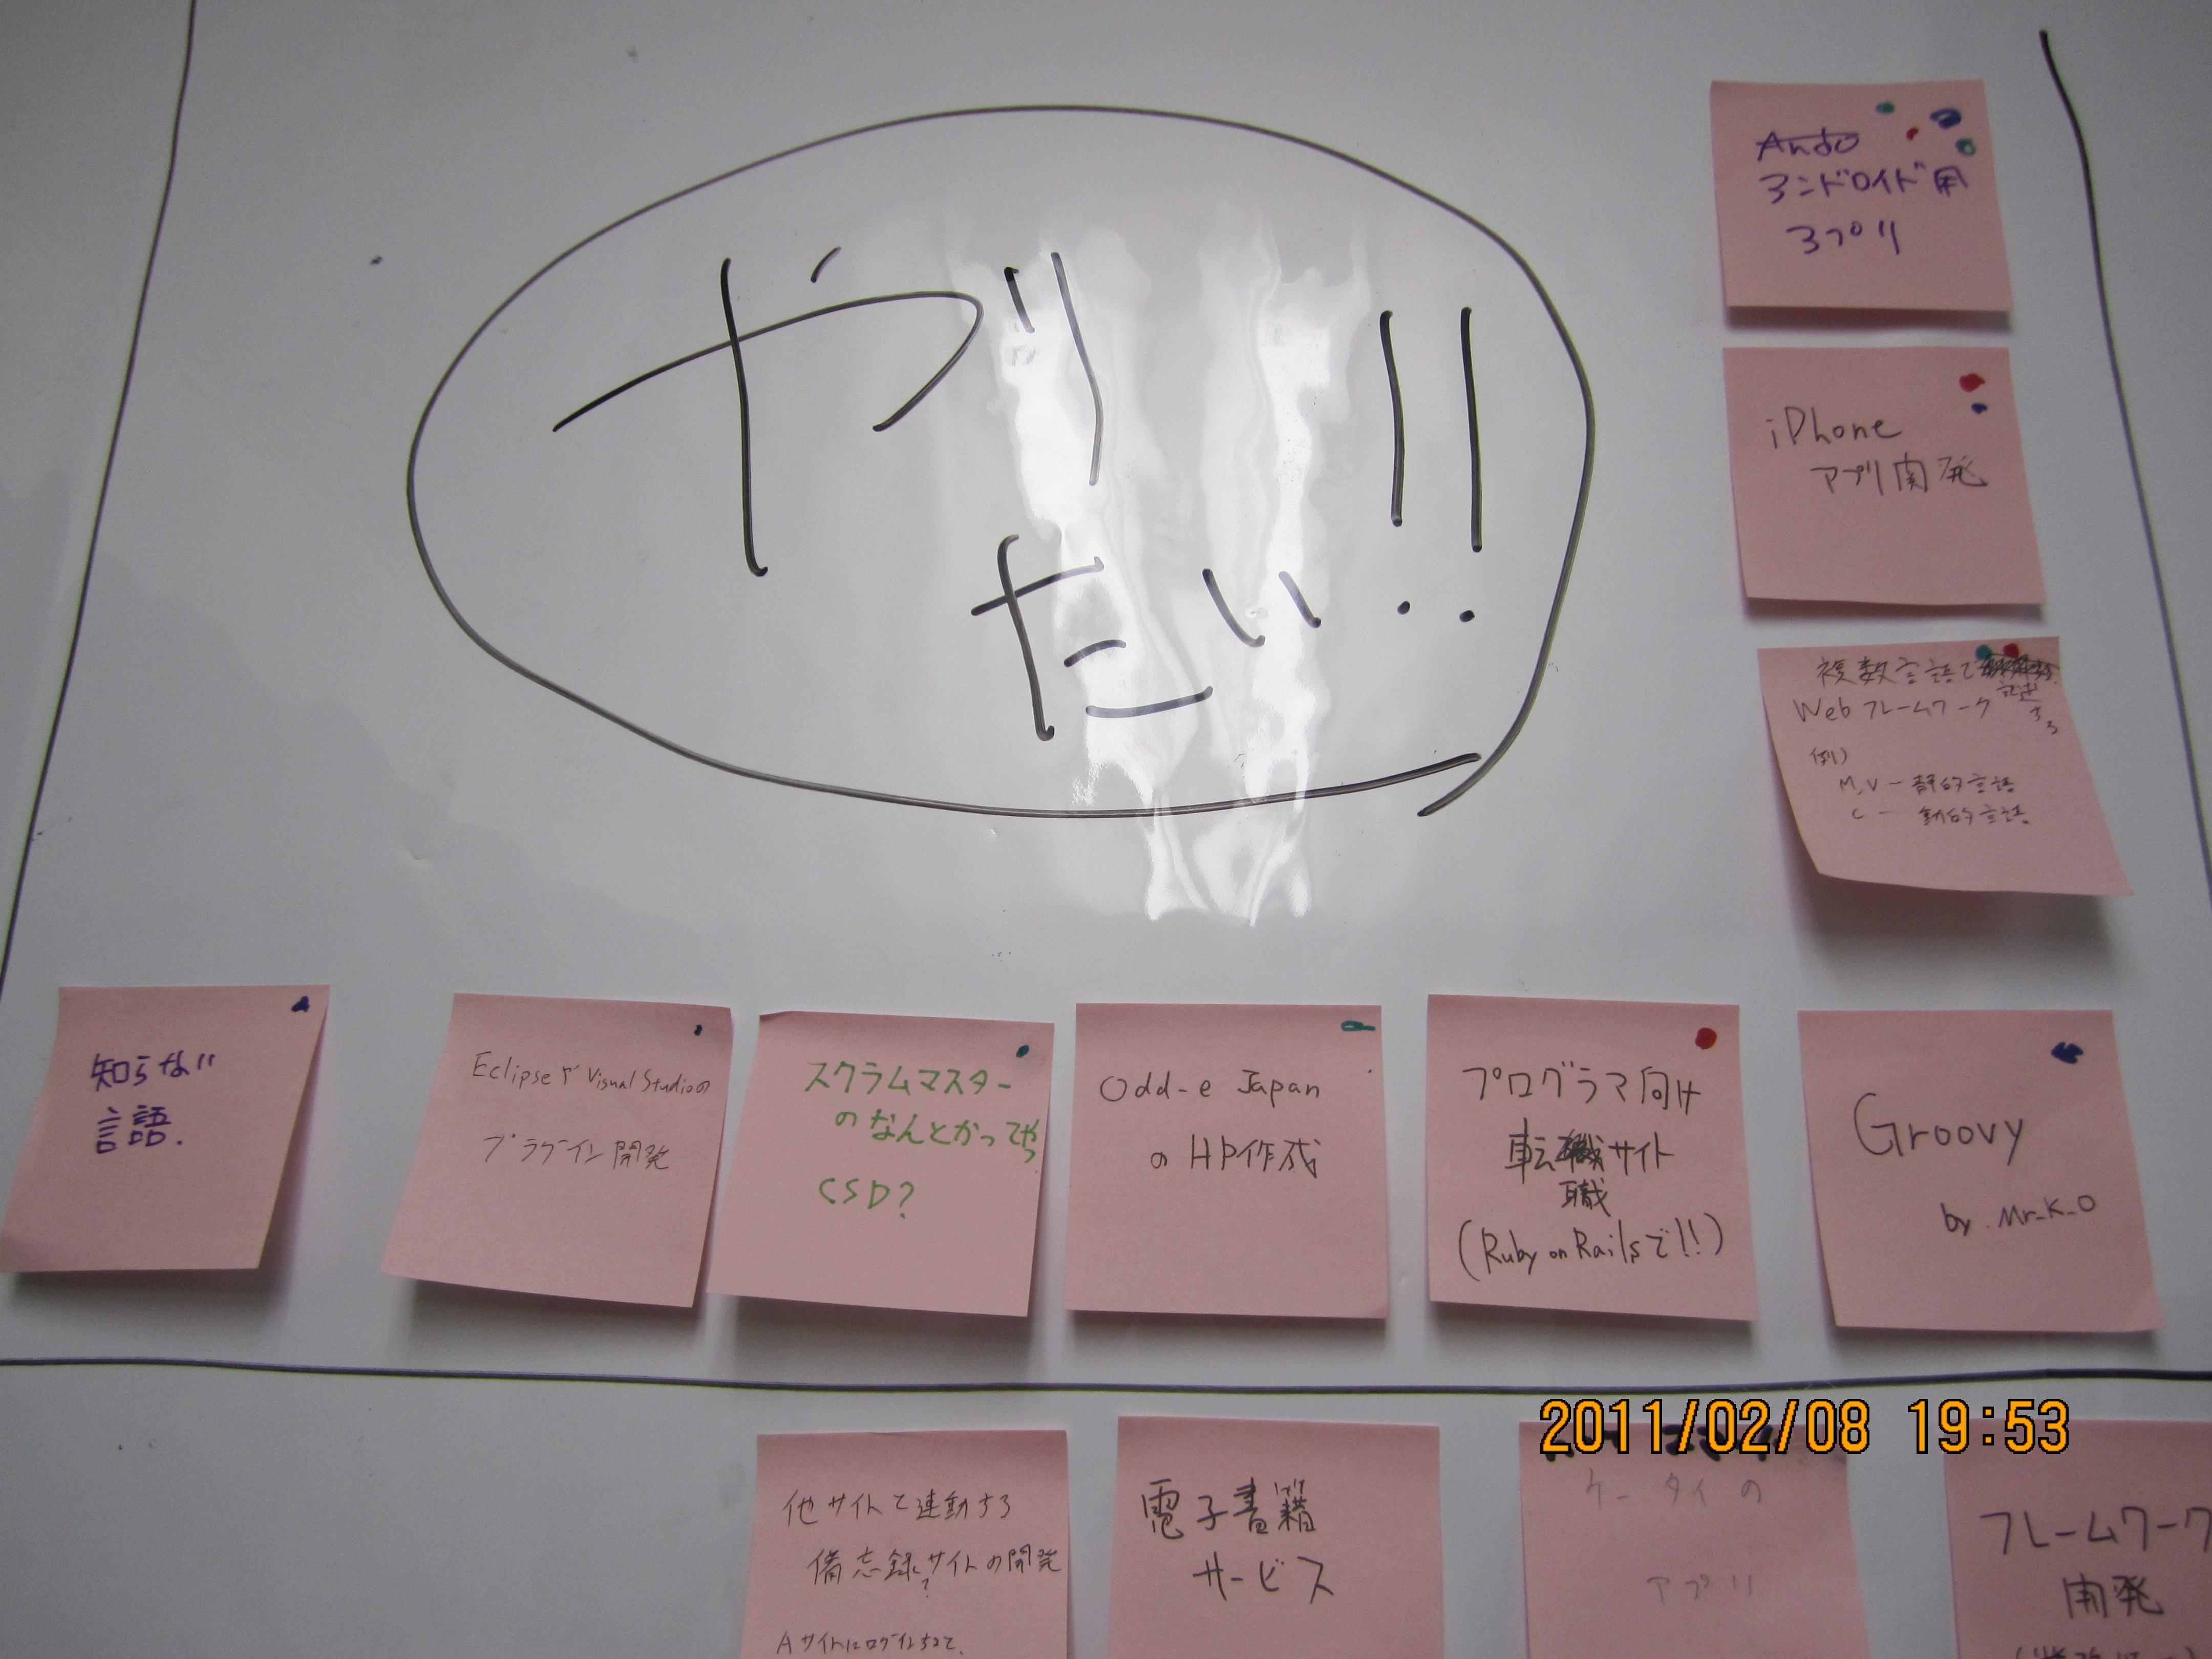 やり
たい!!
Ando
アンドロイド用
アプリ
iPhone
アプリ開発
複数言語で
Webフレームワーク 記述
する
例)
M,V ー 静的言語
C ー 動的言語
知らない
言語.
Eclipseや Visual Studioの
プラグイン開発
スクラムマスター
のなんとかってやつ
CSD?
Odd-e Japan
の HP作成
プログラマ向け
転職サイト
職
(Ruby on Railsで!!)
Groovy
by. Mr_K_O
2011/02/08 19:53
他サイトと連動する
備忘録サイトの開発
Aサイトにログインすると、
電子書籍
サービス
ケータイの
アプリ
フレームワーク
開発